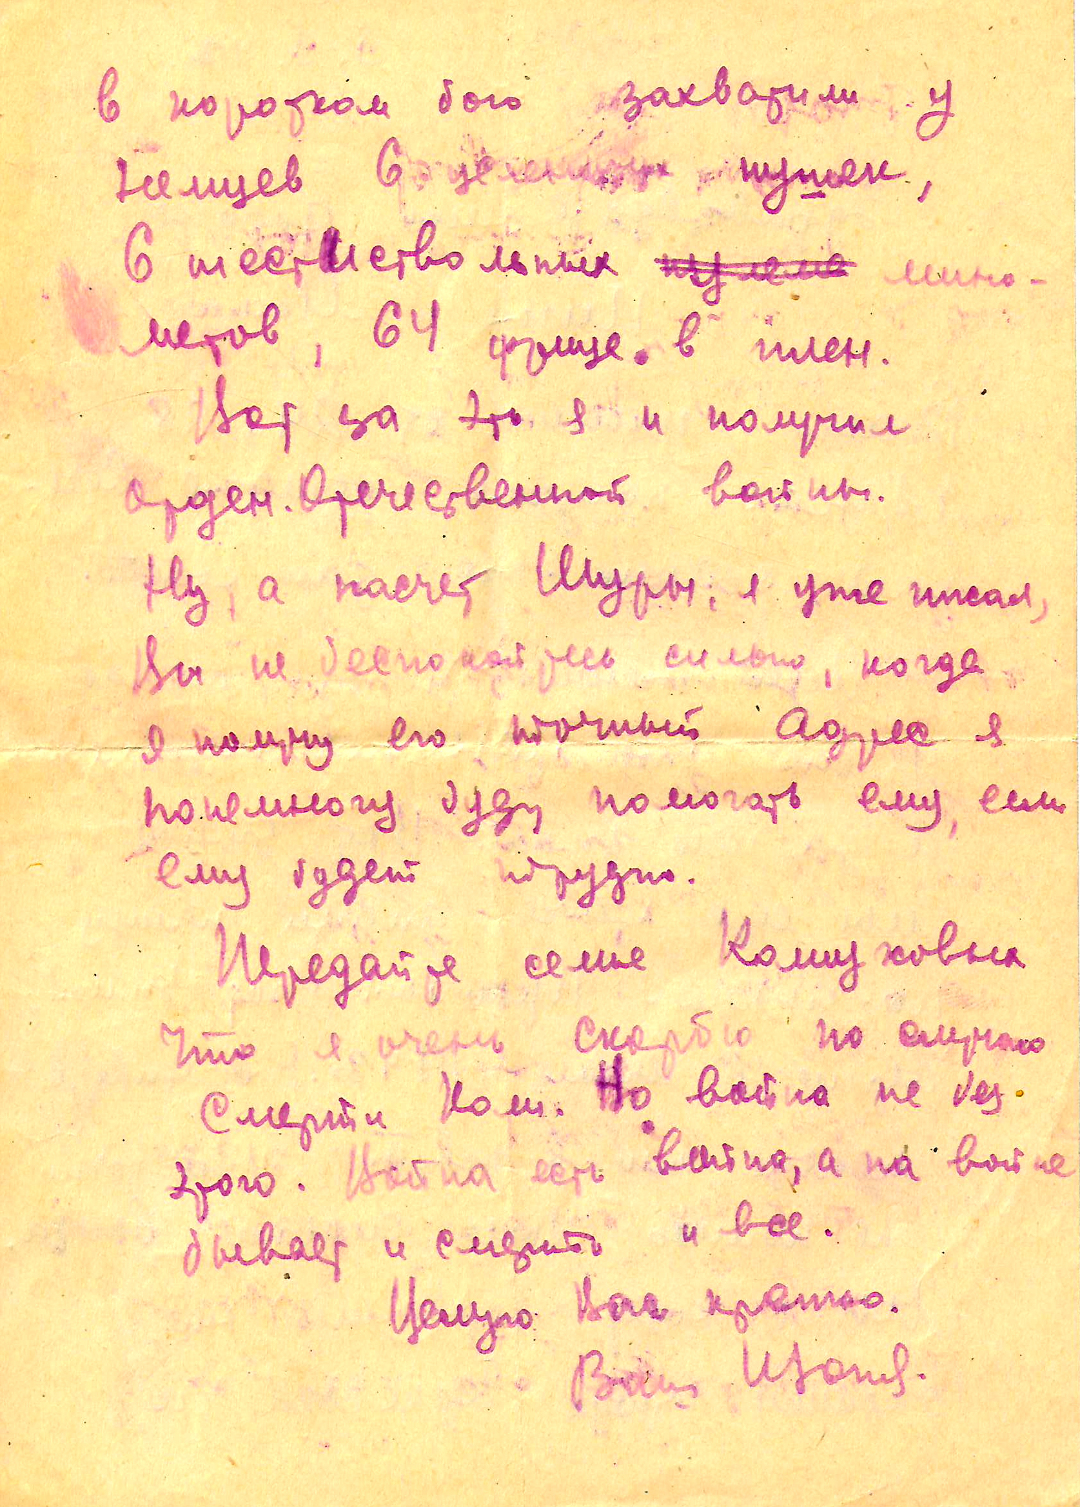 в коротком бою захватили у
немцев 6 пушек,
6 шестиствольных мино-
метов, 64 фрица в плен.
Вот за это я и получил
орден Отечественной войны.
Ну, а насчет Шуры, я уже писал,
Вы не беспокойтесь сильно, когда
я получу его точный адрес я
понемногу буду помогать ему, если
ему будет трудно.
Передайте семье
что я очень скорблю по случаю
смерти Коли. Но война не без
этого. Война есть война, а на войне
бывает и смерть и все.
Целую Вас крепко.
Ваш